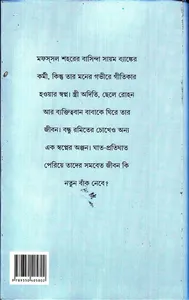 মফস্সল শহরের বাসিন্দা সায়ম ব্যাঙ্কের
কর্মী, কিন্তু তার মনের গভীরে গীতিকার
হওয়ার স্বপ্ন। স্ত্রী অদিতি, ছেলে রোহন
আর ব্যক্তিত্ববান বাবাকে ঘিরে তার
জীবন। বন্ধু রমিতের চোখেও অন্য
এক স্বপ্নের অঞ্জন। ঘাত-প্রতিঘাত
পেরিয়ে তাদের সমবেত জীবন কি
নতুন বাঁক নেবে?